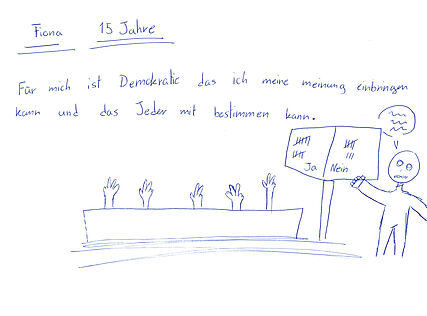 Fiona 15 Jahre
Für mich ist Demokratie das ich meine meinung einbringen
kann und das Jeder mit bestimmen kann.
Ja Nein